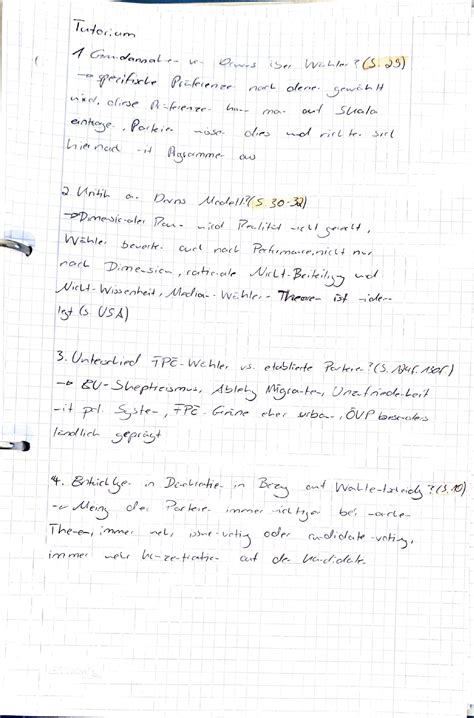 Tutorium
1 Grundannahmen von Downs über Wähler? (S. 29)
→ spezifische Präferenzen nach denen gewählt
wird, diese Präferenzen kann man auf Skala
eintragen, Parteien dies und richten sich
hiernach mit Programmen aus
2. Kritik an Downs Modell? (S. 30-32)
→ Dimensionaler Raum wird Realität nicht gerecht,
Wähler bewerten auch nach Performance, nicht nur
nach Dimension, rationale Nicht-Beteiligung und
Nicht-Wissenheit, Median-Wähler-Theorem ist wider-
legt (s. USA)
3. Unterschied FPÖ-Wähler vs. etablierte Parteien? (S. 124f. 130f.)
→ EU-Skeptizismus, Ablehng Migranten, Unzufriedenheit
mit pol. System, FPÖ-Grüne eher urban, ÖVP besonders
ländlich geprägt
4. in Demokratien in Bezug auf Wahlentscheidg? (S. 10)
→ Meing der Parteien immer wichtiger bei
Themen, immer mehr issue-voting oder candidate-voting,
immer mehr Konzentration auf den Kandidaten